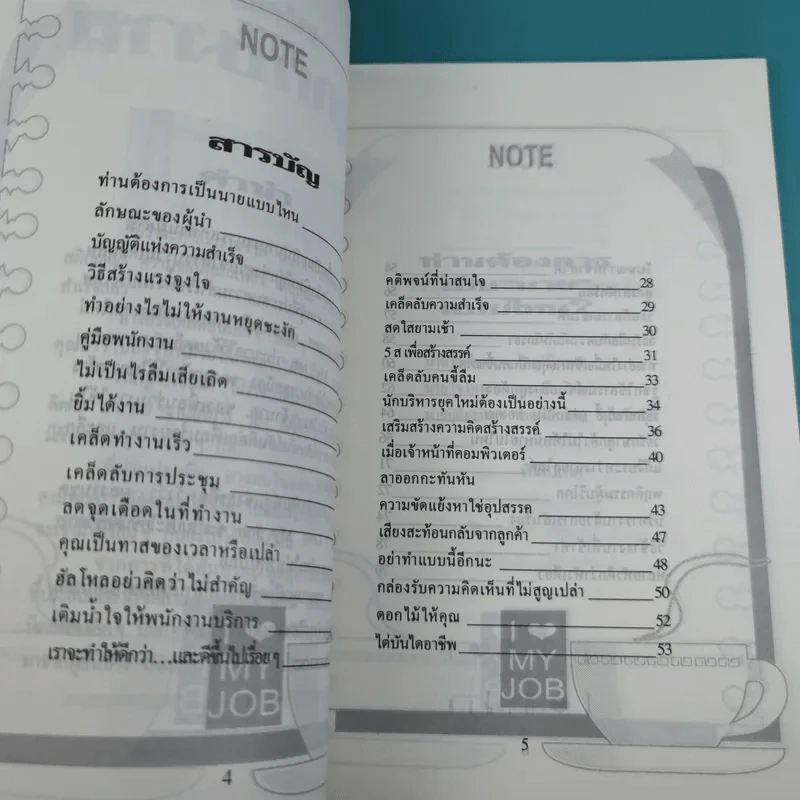 NOTE
สารบัญ
ท่านต้องการเป็นนายแบบไหน
ลักษณะของผู้นำ
บัญญัติแห่งความสำเร็จ
วิธีสร้างแรงจูงใจ
ทำอย่างไรไม่ให้งานหยุดชะงัก
คู่มือพนักงาน
ไม่เป็นไรลืมเสียเถิด
ยิ้มได้งาน
เคล็ดทำงานเร็ว
เคล็ดลับการประชุม
ลดจุดเดือดในที่ทำงาน
คุณเป็นทาสของเวลาหรือเปล่า
ฮัลโหลอย่าคิดว่าไม่สำคัญ
เติมน้ำใจให้พนักงานบริการ
เราจะทำให้ดีกว่า...และดีขึ้นไปเรื่อย ๆ
MY
JOB
4
NOTE
คติพจน์ที่น่าสนใจ 28
เคล็ดลับความสำเร็จ 29
สดใสยามเช้า 30
5 ส เพื่อสร้างสรรค์ 31
เคล็ดลับคนขี้ลืม 33
นักบริหารยุคใหม่ต้องเป็นอย่างนี้ 34
เสริมสร้างความคิดสร้างสรรค์ 36
เมื่อเจ้าหน้าที่คอมพิวเตอร์ 40
ลาออกกะทันหัน
ความขัดแย้งหาใช่อุปสรรค 43
เสียงสะท้อนกลับจากลูกค้า 47
อย่าทำแบบนี้อีกนะ 48
กล่องรับความคิดเห็นที่ไม่สูญเปล่า 50
ดอกไม้ให้คุณ 52
ไต่บันไดอาชีพ 53
I
MY
JOB
5